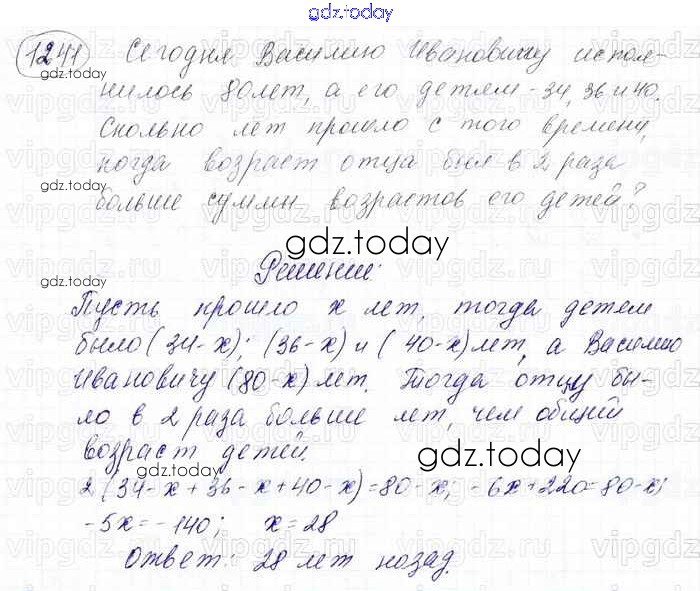 gdz.today
1241 Сегодня Василию Ивановичу испол-
gdz.today
нилось 80 лет, а его детям - 34, 36 и 40.
Сколько лет прошло с того времени,
когда возраст отца был в 2 раза
gdz.today
больше суммы возрастов его детей?
gdz.today
Решение:
Пусть прошло x лет, тогда детям
было (34-x); (36-x) и (40-x) лет, а Василию
gdz.today
Ивановичу (80-x) лет. Тогда отцу бы-
ло в 2 раза больше лет, чем общий
gdz.today
возраст детей.
gdz.today
2(34-x+36-x+40-x)=80-x; -6x+220=80-x;
-5x=-140; x=28
gdz.today
Ответ: 28 лет назад.